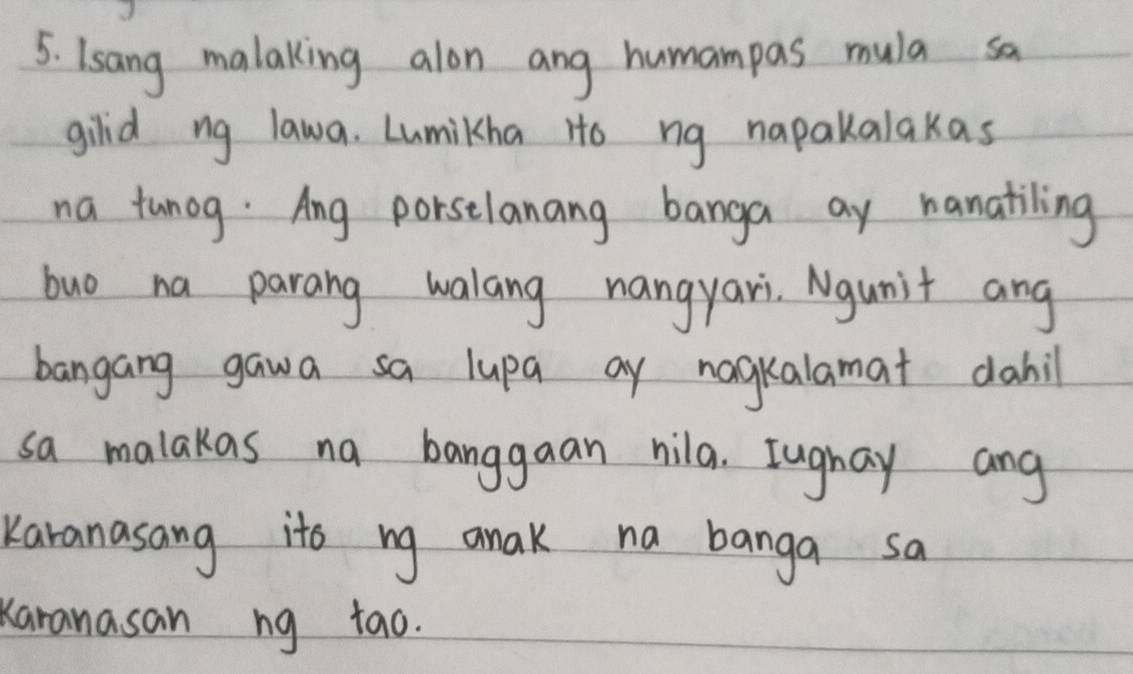 5. Isang malaking alon ang humampas mula sa
gilid ng lawa. Lumikha ito ng napakalakas
na tunog. Ang porselanang banga ay nanatiling
buo na parang walang nangyari. Ngunit ang
bangang gawa sa lupa ay nagkalamat dahil
sa malakas na banggaan nila. Iugnay ang
karanasang ito ng anak na banga sa
karanasan ng tao.